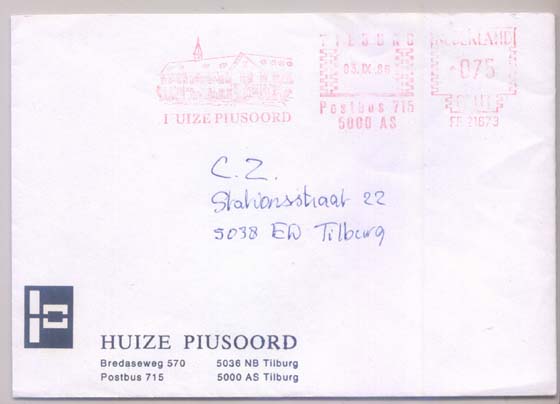 TILBURG
NEDERLAND
03.IX.86
075
CENT
HUIZE PIUSOORD
Postbus 715
5000 AS
FR 21673
C.Z.
Stationsstraat 22
5038 ED Tilburg
HUIZE PIUSOORD
Bredaseweg 570 5036 NB Tilburg
Postbus 715 5000 AS Tilburg